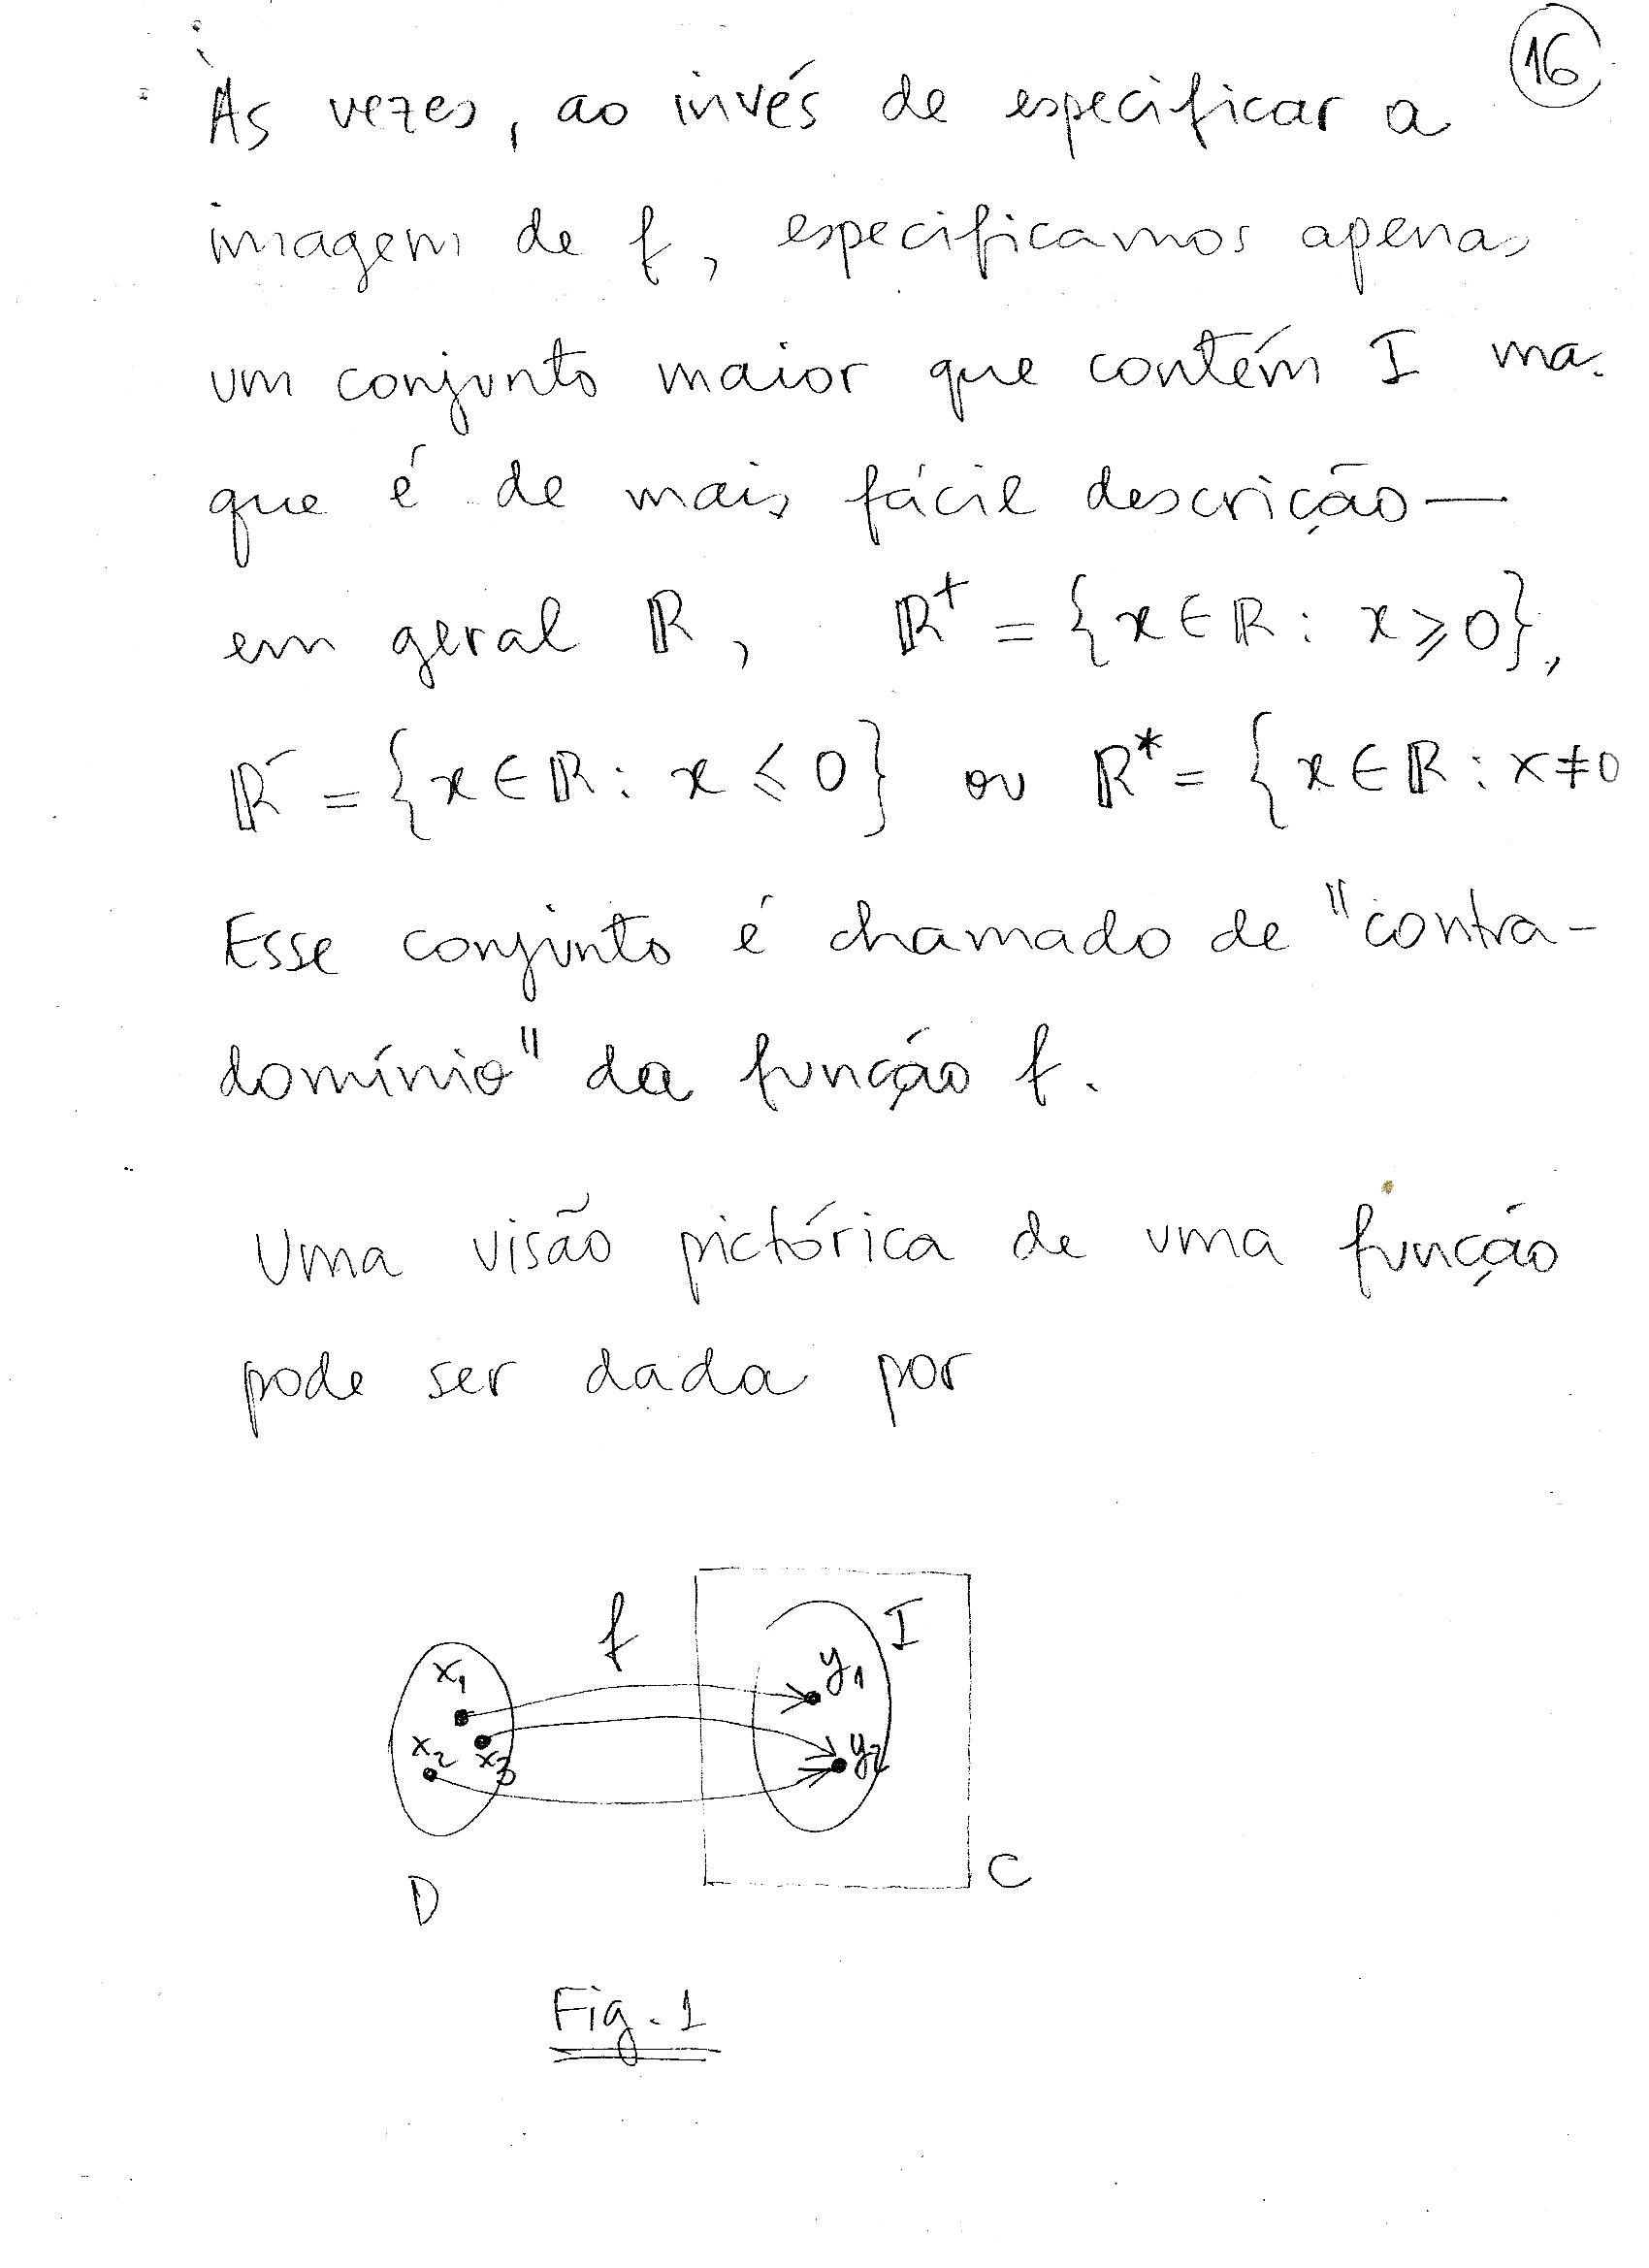 16
Às vezes, ao invés de especificar a
imagem de f, especificamos apenas
um conjunto maior que contém I ma
que é de mais fácil descrição —
em geral ℝ, ℝ⁺ = {x ∈ ℝ : x ⩾ 0},
ℝ⁻ = {x ∈ ℝ : x ⩽ 0} ou ℝ* = {x ∈ ℝ : x ≠ 0
Esse conjunto é chamado de "contra-
domínio" da função f.
Uma visão pictórica de uma função
pode ser dada por
f
I
x₁
y₁
x₂
x₃
y₂
C
D
Fig. 1